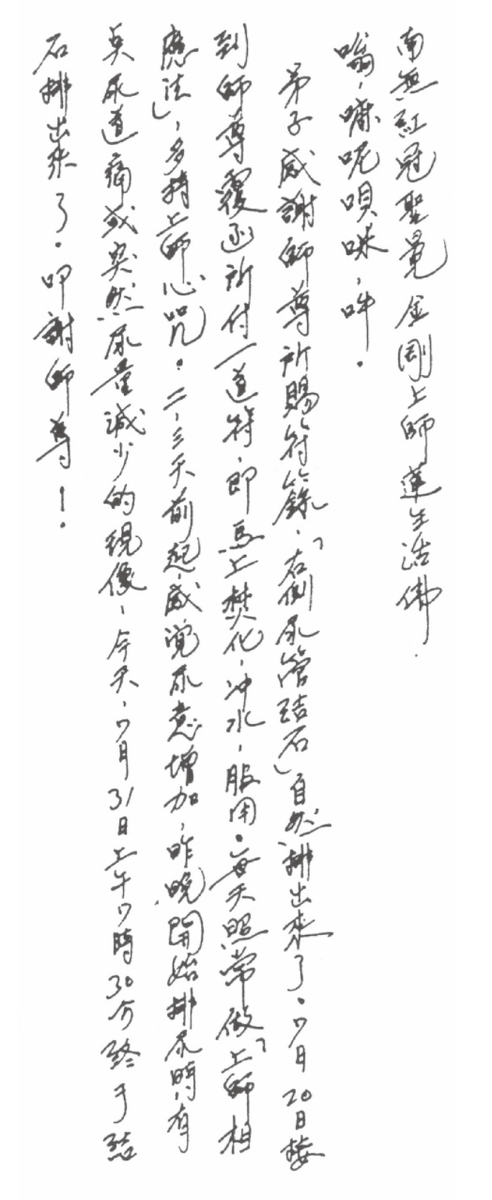 南無紅冠聖冕金剛上師蓮生活佛.
嗡,嘛呢唄咪,吽。
弟子感謝師尊所賜符籙,「右側尿管結石」自然排出來了。7月20日接
到師尊覆函所付一道符,即馬上焚化,沖水,服用。每天照常做「上師相
應法」,多持上師心咒。二、三天前起,感覺尿意增加,昨晚開始排尿時,有
点尿道痛或突然尿量減少的現像,今天,7月31日上午7時30分終于結
石排出來了。叩謝師尊!